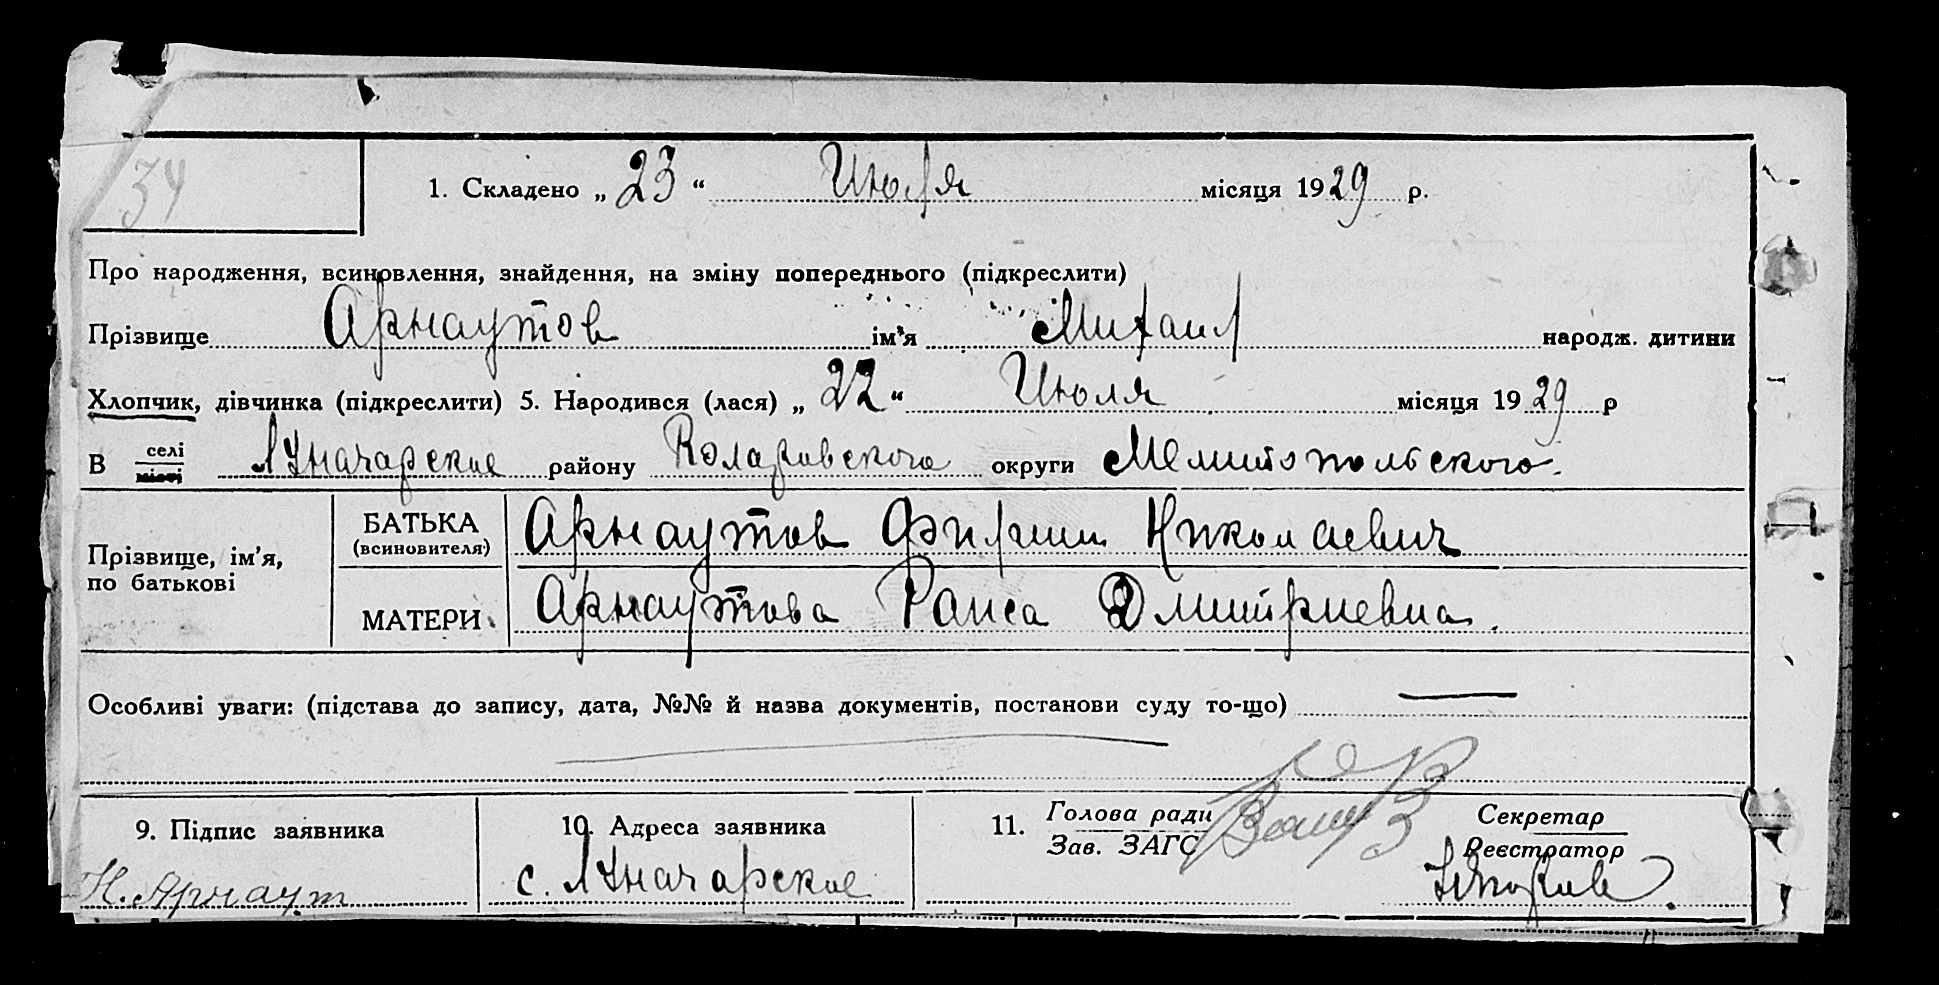 34
1. Складено „ 23 “ Июля місяця 1929 р.
Про народження, всиновлення, знайдення, на зміну попереднього (підкреслити)
Прізвище Арнаутов ім’я Михаил народж. дитини
Хлопчик, дівчинка (підкреслити) 5. Народився (лася) „ 22 “ Июля місяця 1929 р
В селі місті Луначарское району Коларовского округи Мелитопольского.
Прізвище, ім’я, по батькові
БАТЬКА (всиновителя) Арнаутов Филипп Николаевич
МАТЕРИ Арнаутова Раиса Дмитриевна.
Особливі уваги: (підстава до запису, дата, №№ й назва документів, постанови суду то-що) —
9. Підпис заявника
Н. Арнаут
10. Адреса заявника
с. Луначарское
11. Голова ради
Зав. ЗАГС
Секретар
Реєстратор